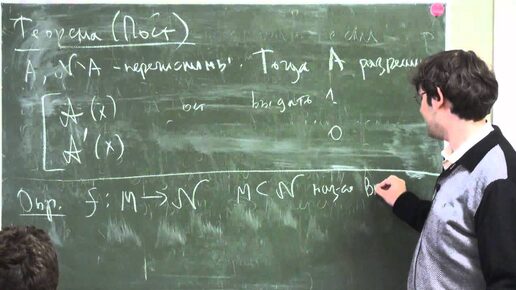 Теорема (Пост)
A, N \ A - перечислимы. Тогда A разреши
A(x) ост выдать 1
A'(x) 0
Опр. f: M → N M ⊂ N наз-ся В